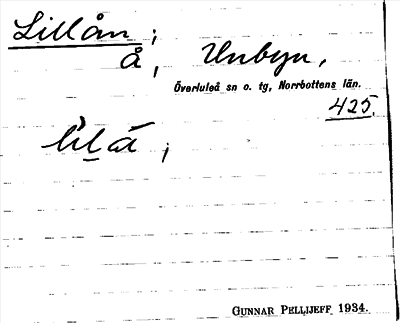 Lillån ;
å, Unbyn,
Överluleå sn o. tg, Norrbottens län.
425.
GUNNAR PELLIJEFF 1934.